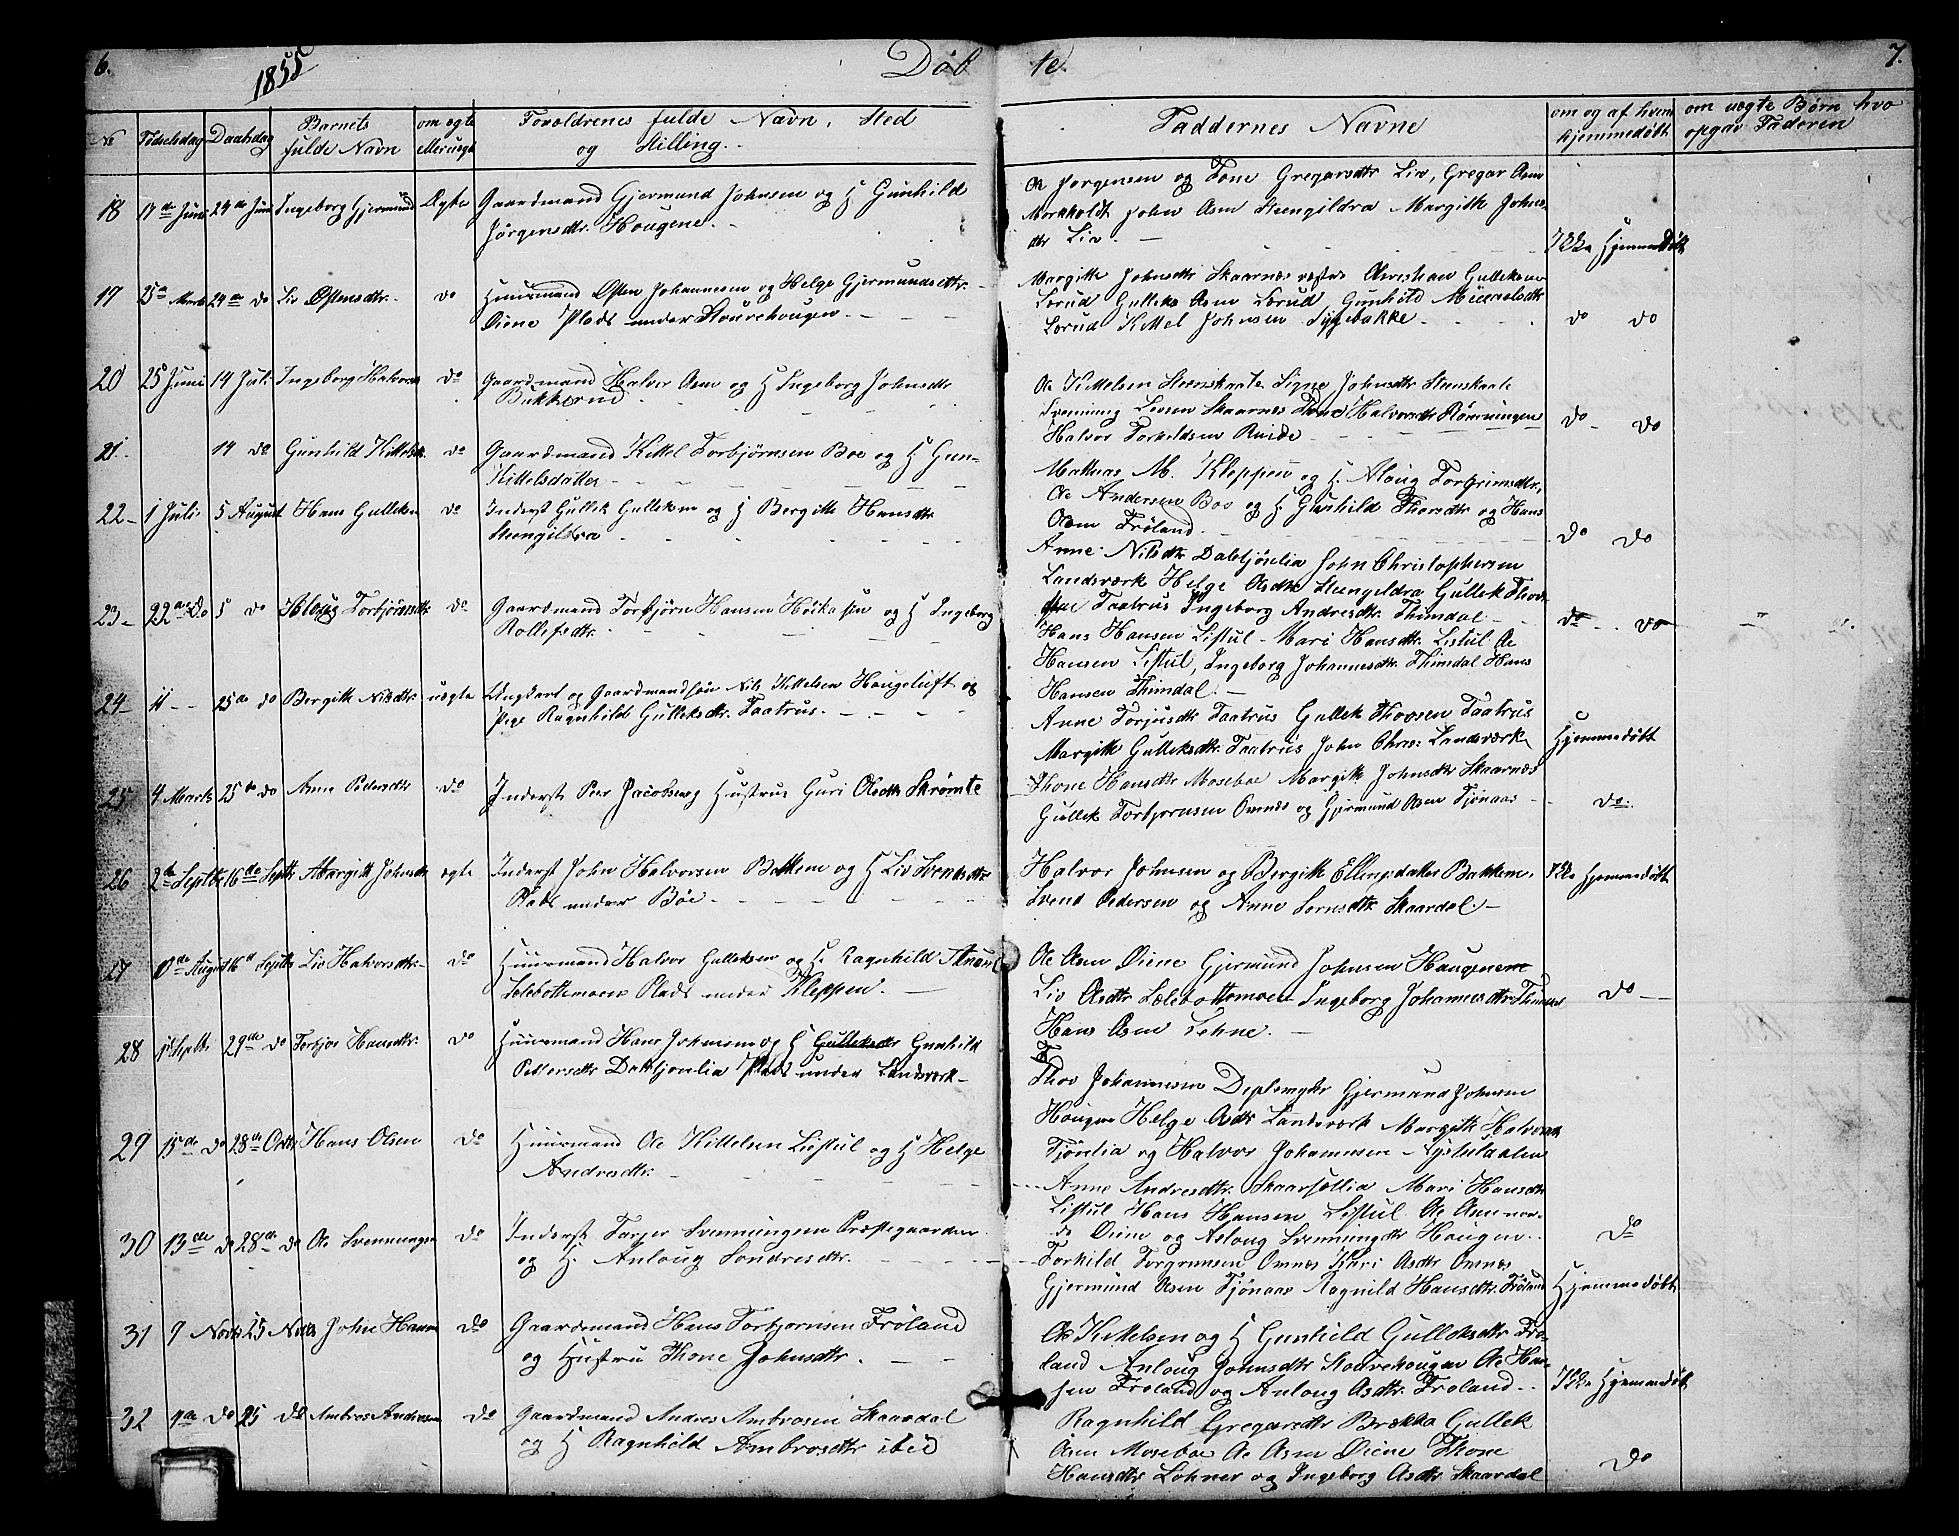 6.
1855
Døb
te.
7.
№
Fødselsdag
Daabsdag
Barnets
fulde Navn
om ægte
eller uægte
Forældrenes fulde Navn, Sted
og Stilling.
Faddernes Navne
om og af hvem
hjemmedøbt
om uægte Børn hvo
opgav Faderen
18 17de Juni 24de Juni Ingeborg Gjermund Ægte Gaardmand Gjermund Johnsen og H Gunhild
Jörgensdtr. Hougene.
Oe Jorgensen og Tone Gregarsdtr Liv, Gregar Asm
Morkholdt John Asm Steengildra Margith Johns-
dtr Liv. Ikke Hjemmedøbt
19 25de Marts 24de do Liv Østensdtr. do Huusmand Østen Johannesen og Helge Gjermundsdtr.
Øiene Plads under Stourehougen.
Margith Johnsdtr Skaarnæs Gulleksen
Lorud Gulleks Asm Lorud, Gunhild
Lorud Kittel Johnsen Sygebakke. do do
20 25 Juni 14 Juli Ingeborg Halvors do Gaardmand Halvor Asm og H Ingeborg Johnsdtr
Bakkerud
Oe Kittelsen Steenskaate Signe Johnsdtr Stenskaate
Svennung Skaarnæs Thone Halvorsdtr Rønningen
Halvor Torkildsen Ruide do do
21. 14 do Gunhild Kittelsdtr do Gaardmand Kittel Torbjørnsen Boe og H Gun-
Kittelsdatter
Mathias M. Kleppen og H. Aloug Torgrimsdtr,
Oe Andersen Boe og H Gunhild Thorsdtr og Hans
Oesm Frøland.
22 1 Juli 5 August Hans Gulleksn do Inderst Gullek Gulleksen og H Bergith Hansdtr
Steengildra
do do
Anne Nilsdtr Daletjønlia John Christophersen
Landsværk Helge Oesdtr Steengildra Gullek Thovs-
Taatrus Ingeborg Andresdtr. Thimdal
23 22de do 5 do Aloug Torbjörnsdtr do Gaardmand Torbjörn Hansen og H Ingeborg
Rollefsdtr.
do do
Hans Hansen Listul Mari Hansdtr. Listul Oe
Hansen Listul, Ingeborg Johannesdtr. Thimdal Hans
Hansen Thimdal.
24 11 25de do Bergith Nilsdtr. uægte Ungkarl og Gaardmandsøn Nils Kittelsen Hougeluft og
Pige Ragnhild Gulleksdtr. Taatrus.
Anne Torjusdtr Taatrus Gullek Thovsen Taatrus
Margith Gulleksdtr. Taatrus John Chres: Landsværk Hjemmedøbt
25 4 Marts 25de do Anne Pedersdtr do Inderst Peer Jacobs og Hustrue Guri Olsdtr Skrømte
Thone Hansdtr Moseboe Margith Johnsdtr Skaarnæs
Gullek Torbjornsen Omnæs og Gjermund Olsen Tjönaas do.
26 2de Septbr 16de Septbr Margith Johnsdtr ægte Inderst John Halvorsen Bakken og H Liv Svendsdtr.
Plads under Böe
Halvor Johnsen og Bergith Ellingsdatter Bakken.
Svend Pedersen og Anne Sornsdtr Skaardal. Ikke hjemmedøbt
27 10de August 16d Septbr Liv Halvorsdtr. do Huusmand Halvor Gulleksen og H. Ragnhild
Lælebottemoen Plads under Kleppen.
Oe Asm Øiene Gjermund Johnsen Haugene
Liv Asdtr Lælebottemoen Ingeborg Johannesdtr
Hans Asm Lehne. do
28 Septbr 29de do Torbjor Hansdtr. do Huusmand Hans Johnsen og H Gulleksdtr Gunhild
Pettersdtr Daletjonlia Plads under Landsværk
Thov Johannesen Gjermund Johnsen
Hougen Helge Asdtr Landsværk Margith Halvorsdtr
Tjönlia og Halvor Johannesen
29 15de do 28de Octbr Hans Olsen do Huusmand Oe Kittelsen Listul og H Helge
Andresdtr.
Anne Andresdtr. Skaarsöllia Mari Hansdtr
Listul Hans Hansen Listul Oe Asm
Øiene og Asloug Svenningsdtr Haugen. do
30 13de do 28de do Oe Svennungen do Inderst Torger Svenningen Præstegaarden
og H. Anloug Sondresdtr.
Torkild Torgrimsen Omnæs Kari Asdtr Omnæs
Gjermund Olsen Tjönaas Ragnild Hansdtr. Frøland Hjemmedöbt
31 9 Novbr 25 Novbr John Hansen do Gaardmand Hans Torbjornsen Fröland
og Hustru Thone Johnsdtr.
Oe Kittelsen og H Gunhild Gulleksdtr Frø-
land Anloug Johnsdtr Stourehougen Oe Han-
sen Froland og Anloug Asdtr Froland. Ikke Hjemmedøbt
32 1de do 25 do Ambros Andersen do Gaardmand Andres Ambrosen Skaardal
og H Ragnhild Ambrosdtr ibed
Ragnhild Gregarsdtr Brækka Gullek
Asm Moseboe Oe Asm Øiene Thone
Hansdtr Lohner og Ingeborg Asdtr Skaardal do